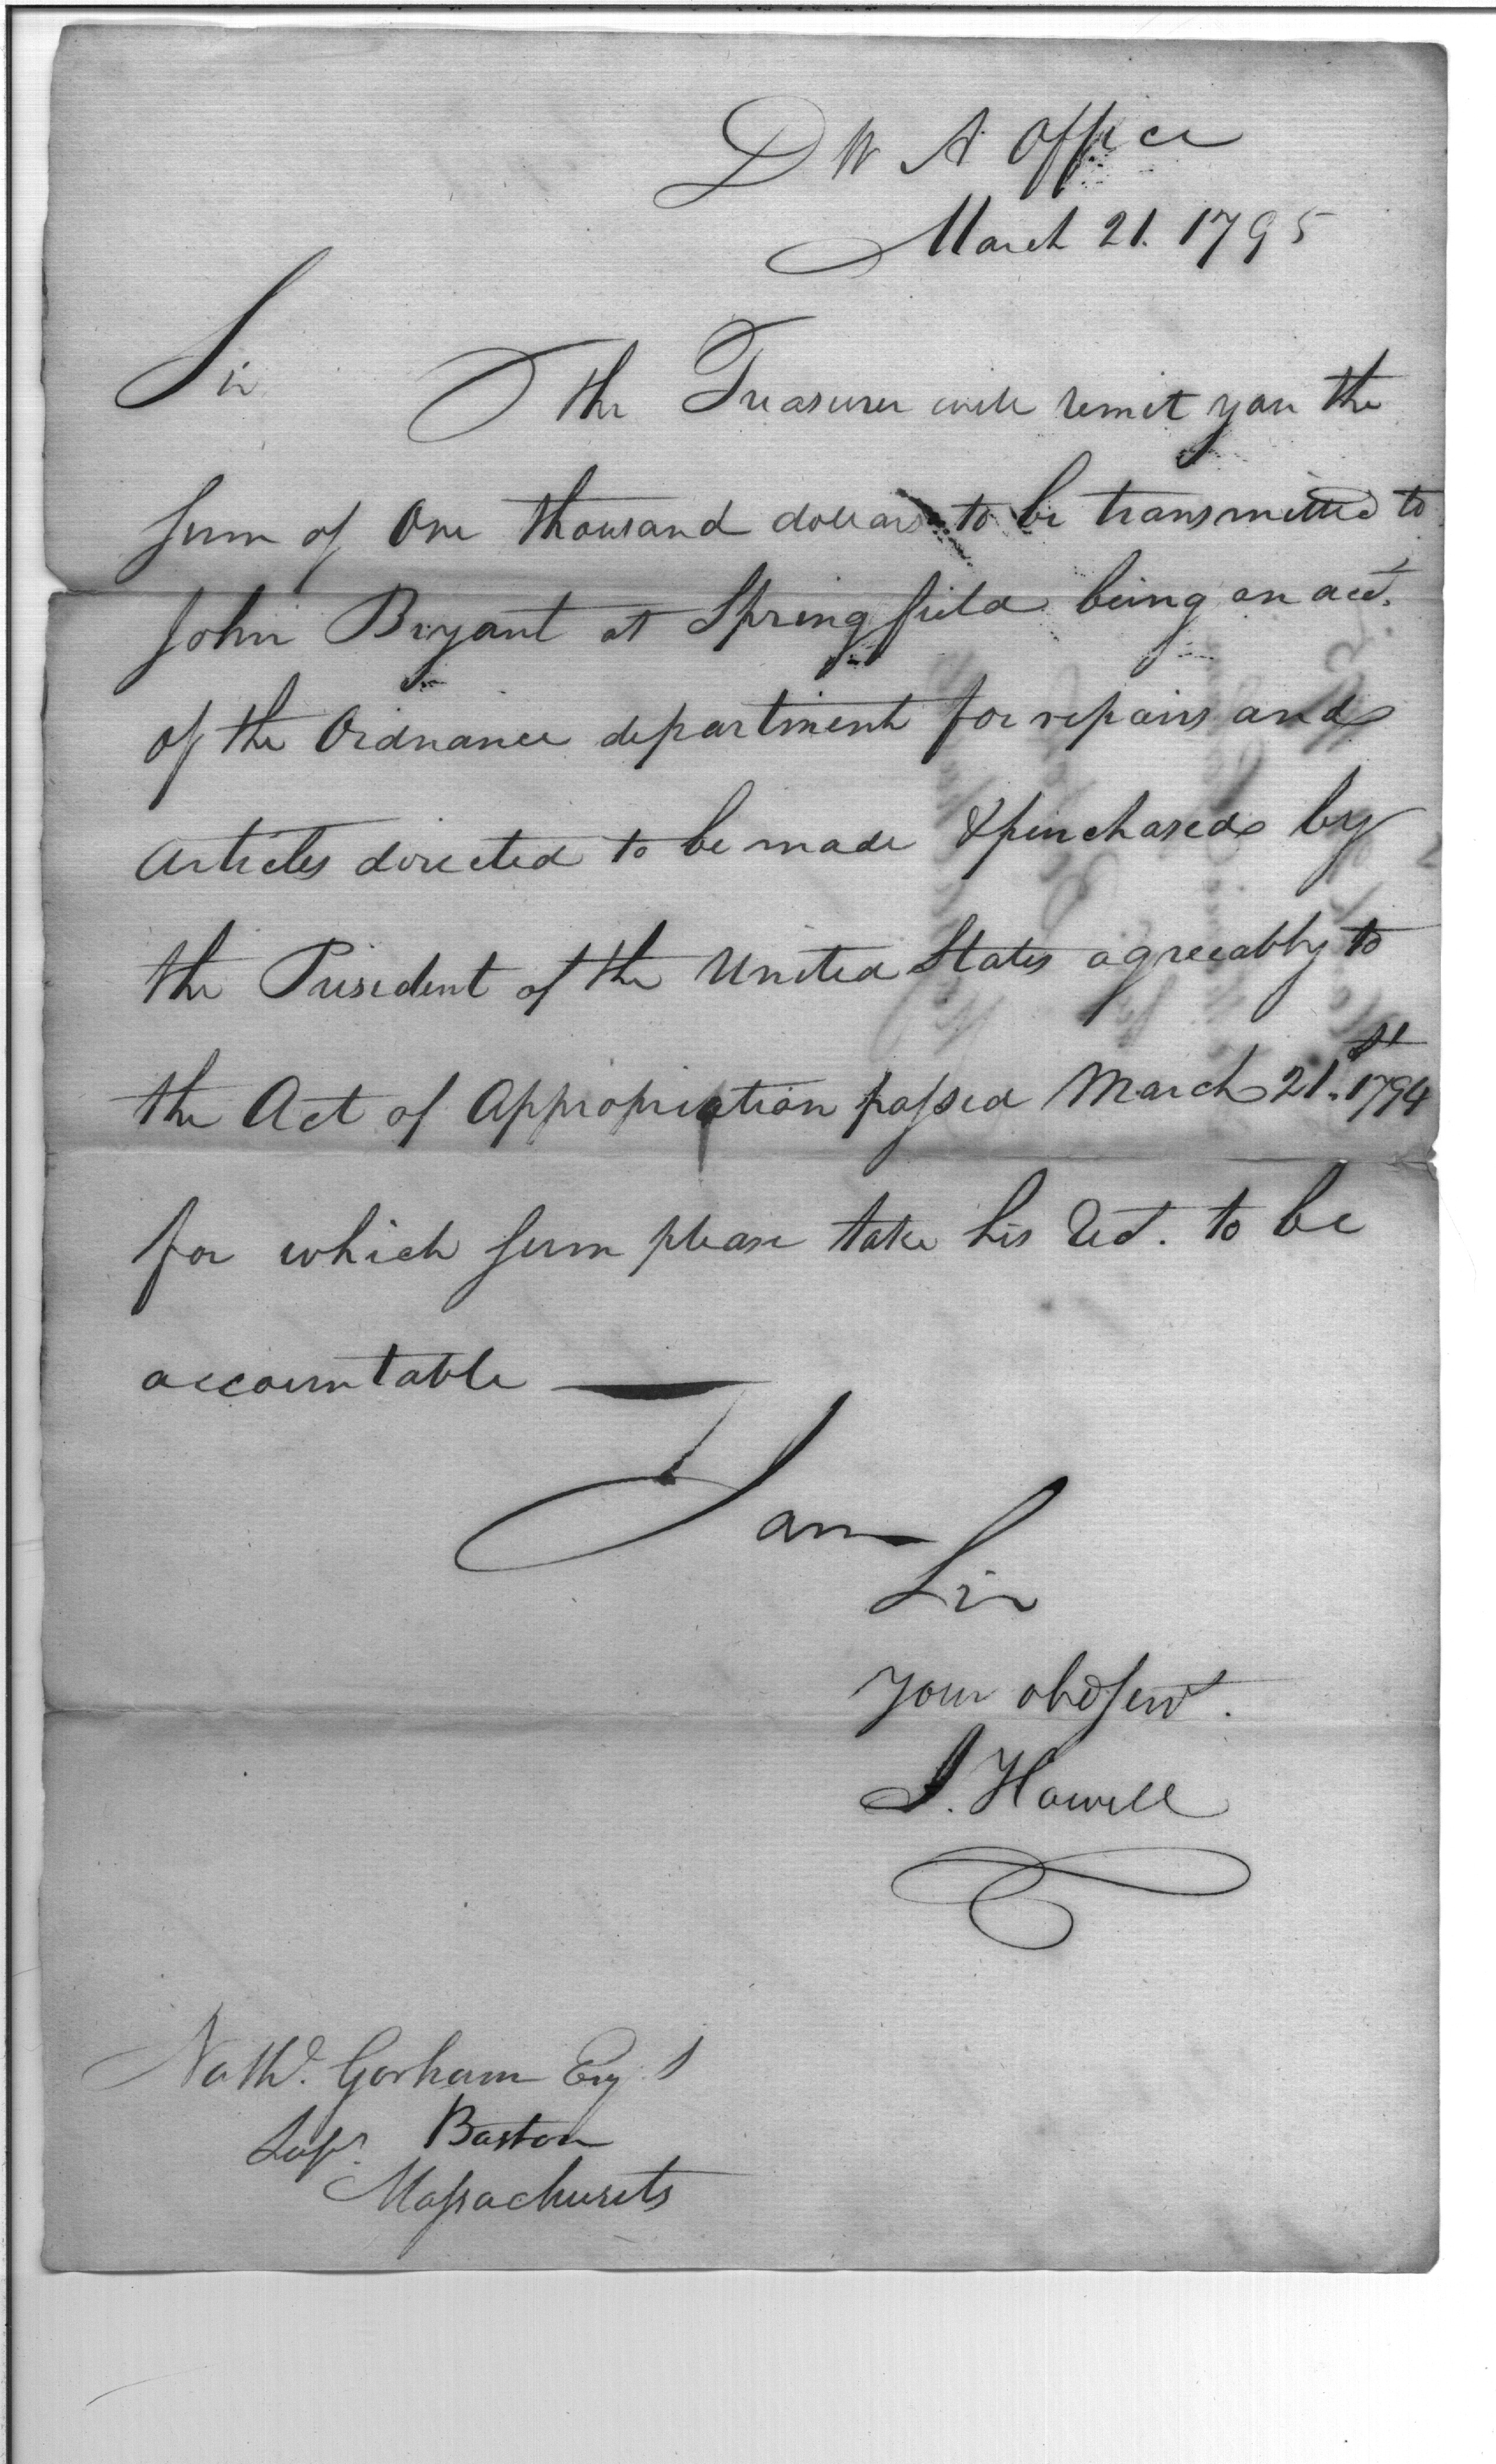 D W A Office
March 21. 1795
Sir
The Treasurer will remit you the
sum of One thousand dollars to be transmitted to
John Bryant at Springfield being on acct.
of the Ordnance department for repairs and
Articles directed to be made & purchased by
the President of the United States agreeably to
the Act of Appropriation passed March 21.st 1794
for which sum please take his Rect. to be
accountable
I am
Sir
Your obed Servt.
J. Howell
Nathl. Gorham Esqr
Supr. Boston
Massachusets